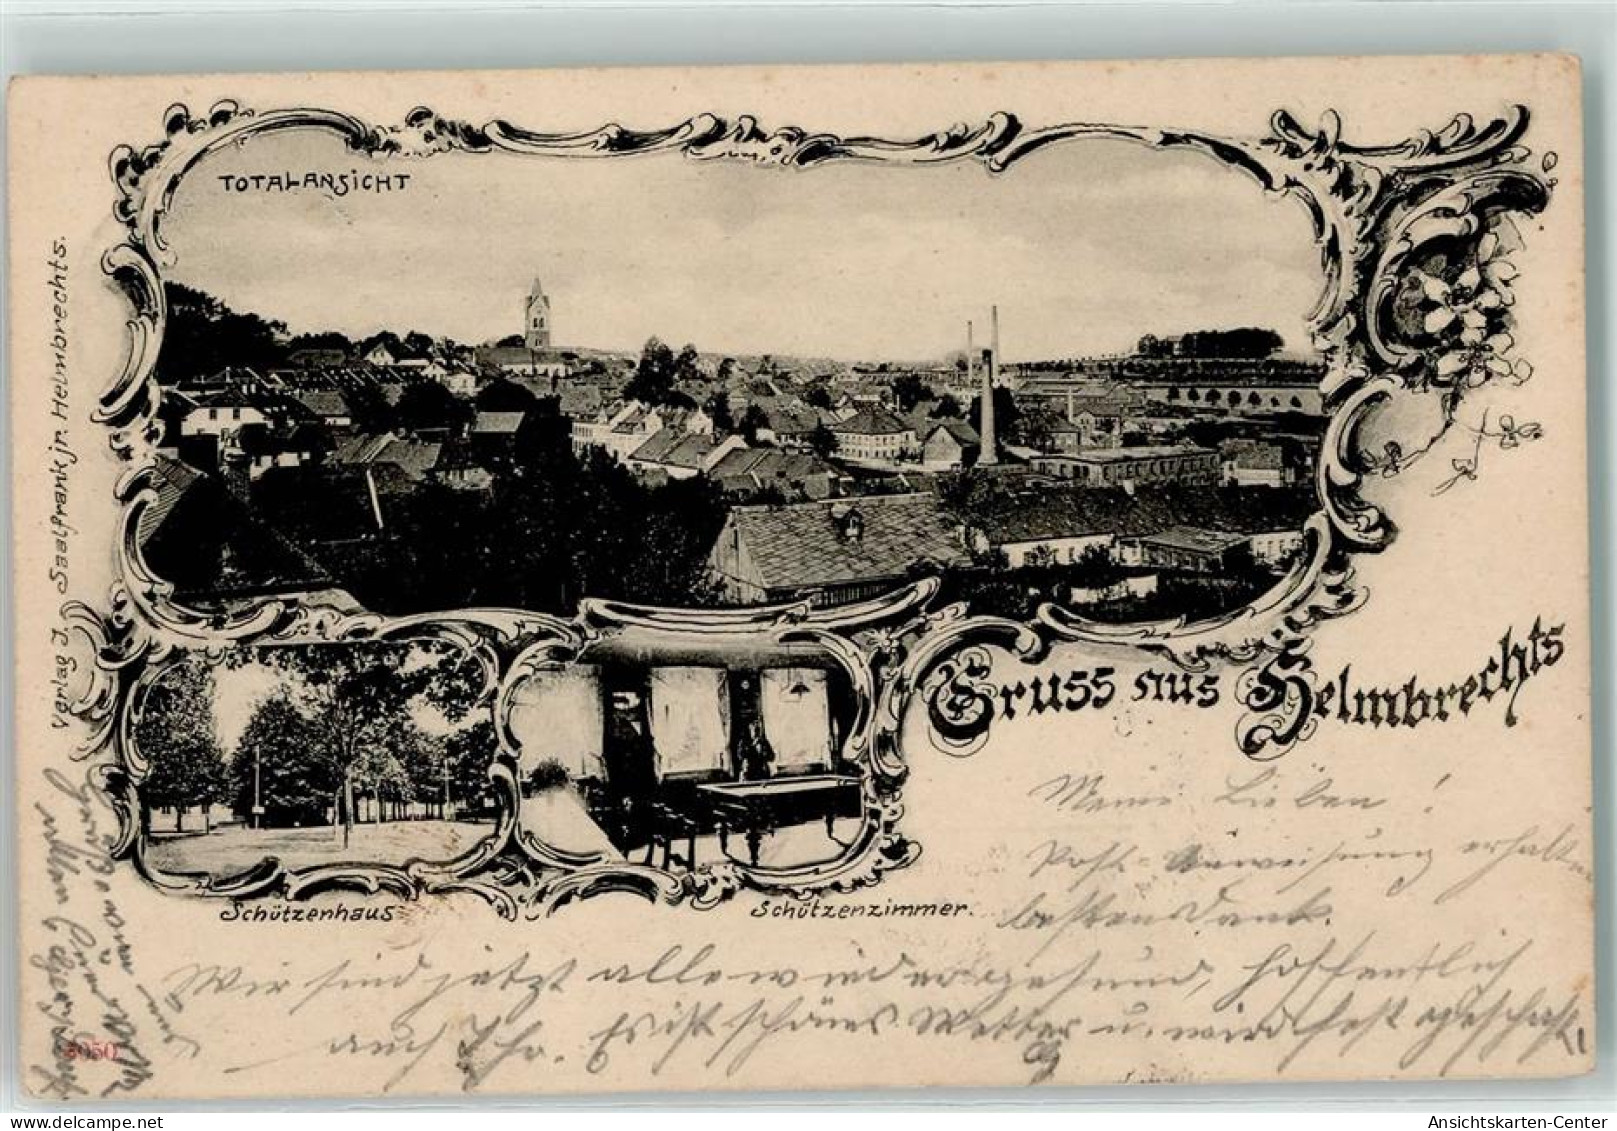 TOTALANSICHT
Verlag J. Saalfrank jr. Helmbrechts.
Gruss aus Helmbrechts
Schützenhaus
Schützenzimmer.
Meine Lieben!
Post-Anweisung erhalten
besten Dank.
Wir sind jetzt alle wieder gesund, hoffentlich
auch Ihr. Es ist schönes Wetter u. wird fest geschafft
3050
Ansichtskarten-Center